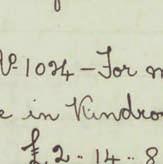 № 1024 – For
in Kindro
£ 2 „ 14 „ 8